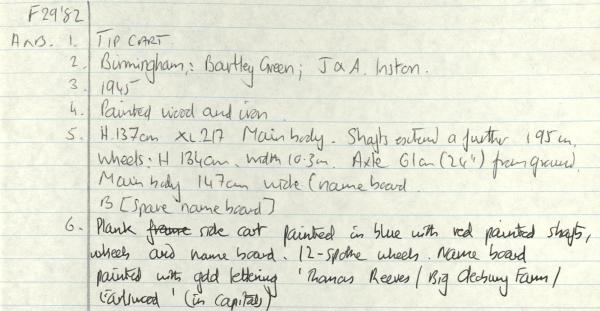 F29'82
A+B. 1. TIP CART.
2. Birmingham,: Bartley Green; J & A. Inston.
3. 1945
4. Painted wood and iron.
5. H. 137cm x L 217 Main body. Shafts extend a further 195 cm.
Wheels: H 134cm. width 10.3cm. Axle 61cm (24") from ground.
Main body 147cm wide (name board.
B [Spare name board]
6. Plank frame side cart painted in blue with red painted shafts,
wheels and name board. 12-spoke wheels. Name board
painted with gold lettering 'Thomas Reeves / Big Farm /
' (in capitals)